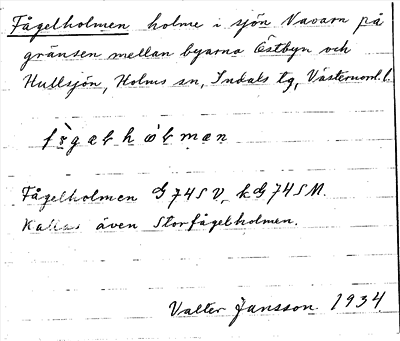 Fågelholmen holme i sjön Navarn på
gränsen mellan byarna Östbyn och
Hullsjön, Holms sn, Indals tg, Västernorrl. l.
Fågelholmen G 74 S V, k G 74 S M.
Kallas även Storfågelholmen.
Valter Jansson. 1934